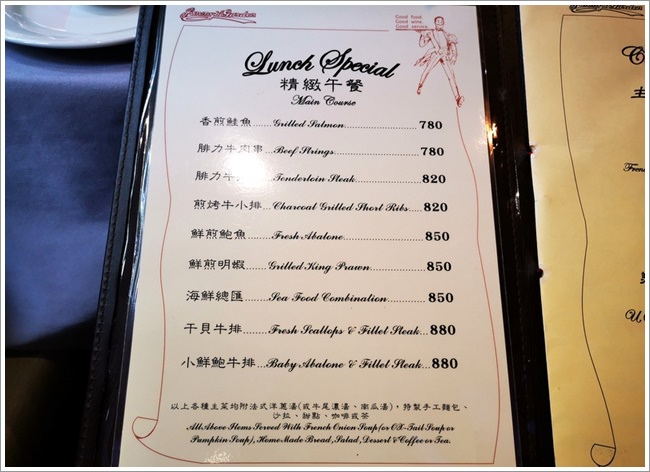 Good food.
Good wine.
Good service.
Lunch Special
精緻午餐
Main Course
香煎鮭魚........Grilled Salmon........780
腓力牛肉串...Beef Strings........780
腓力牛...Tenderloin Steak........820
煎烤牛小排...Charcoal Grilled Short Ribs...820
鮮煎鮑魚........Fresh Abalone........850
鮮煎明蝦........Grilled King Prawn........850
海鮮總匯........Sea Food Combination........850
干貝牛排........Fresh Scallops & Fillet Steak...880
小鮮鮑牛排...Baby Abalone & Fillet Steak...880
以上各種主菜均附法式洋蔥湯(或牛尾濃湯、南瓜湯)、特製手工麵包、
沙拉、甜點、咖啡或茶
All Above Items Served With French Onion Soup(or OX-Tail Soup or
Pumpkin Soup), Home Made Bread, Salad, Dessert & Coffee or Tea.
主